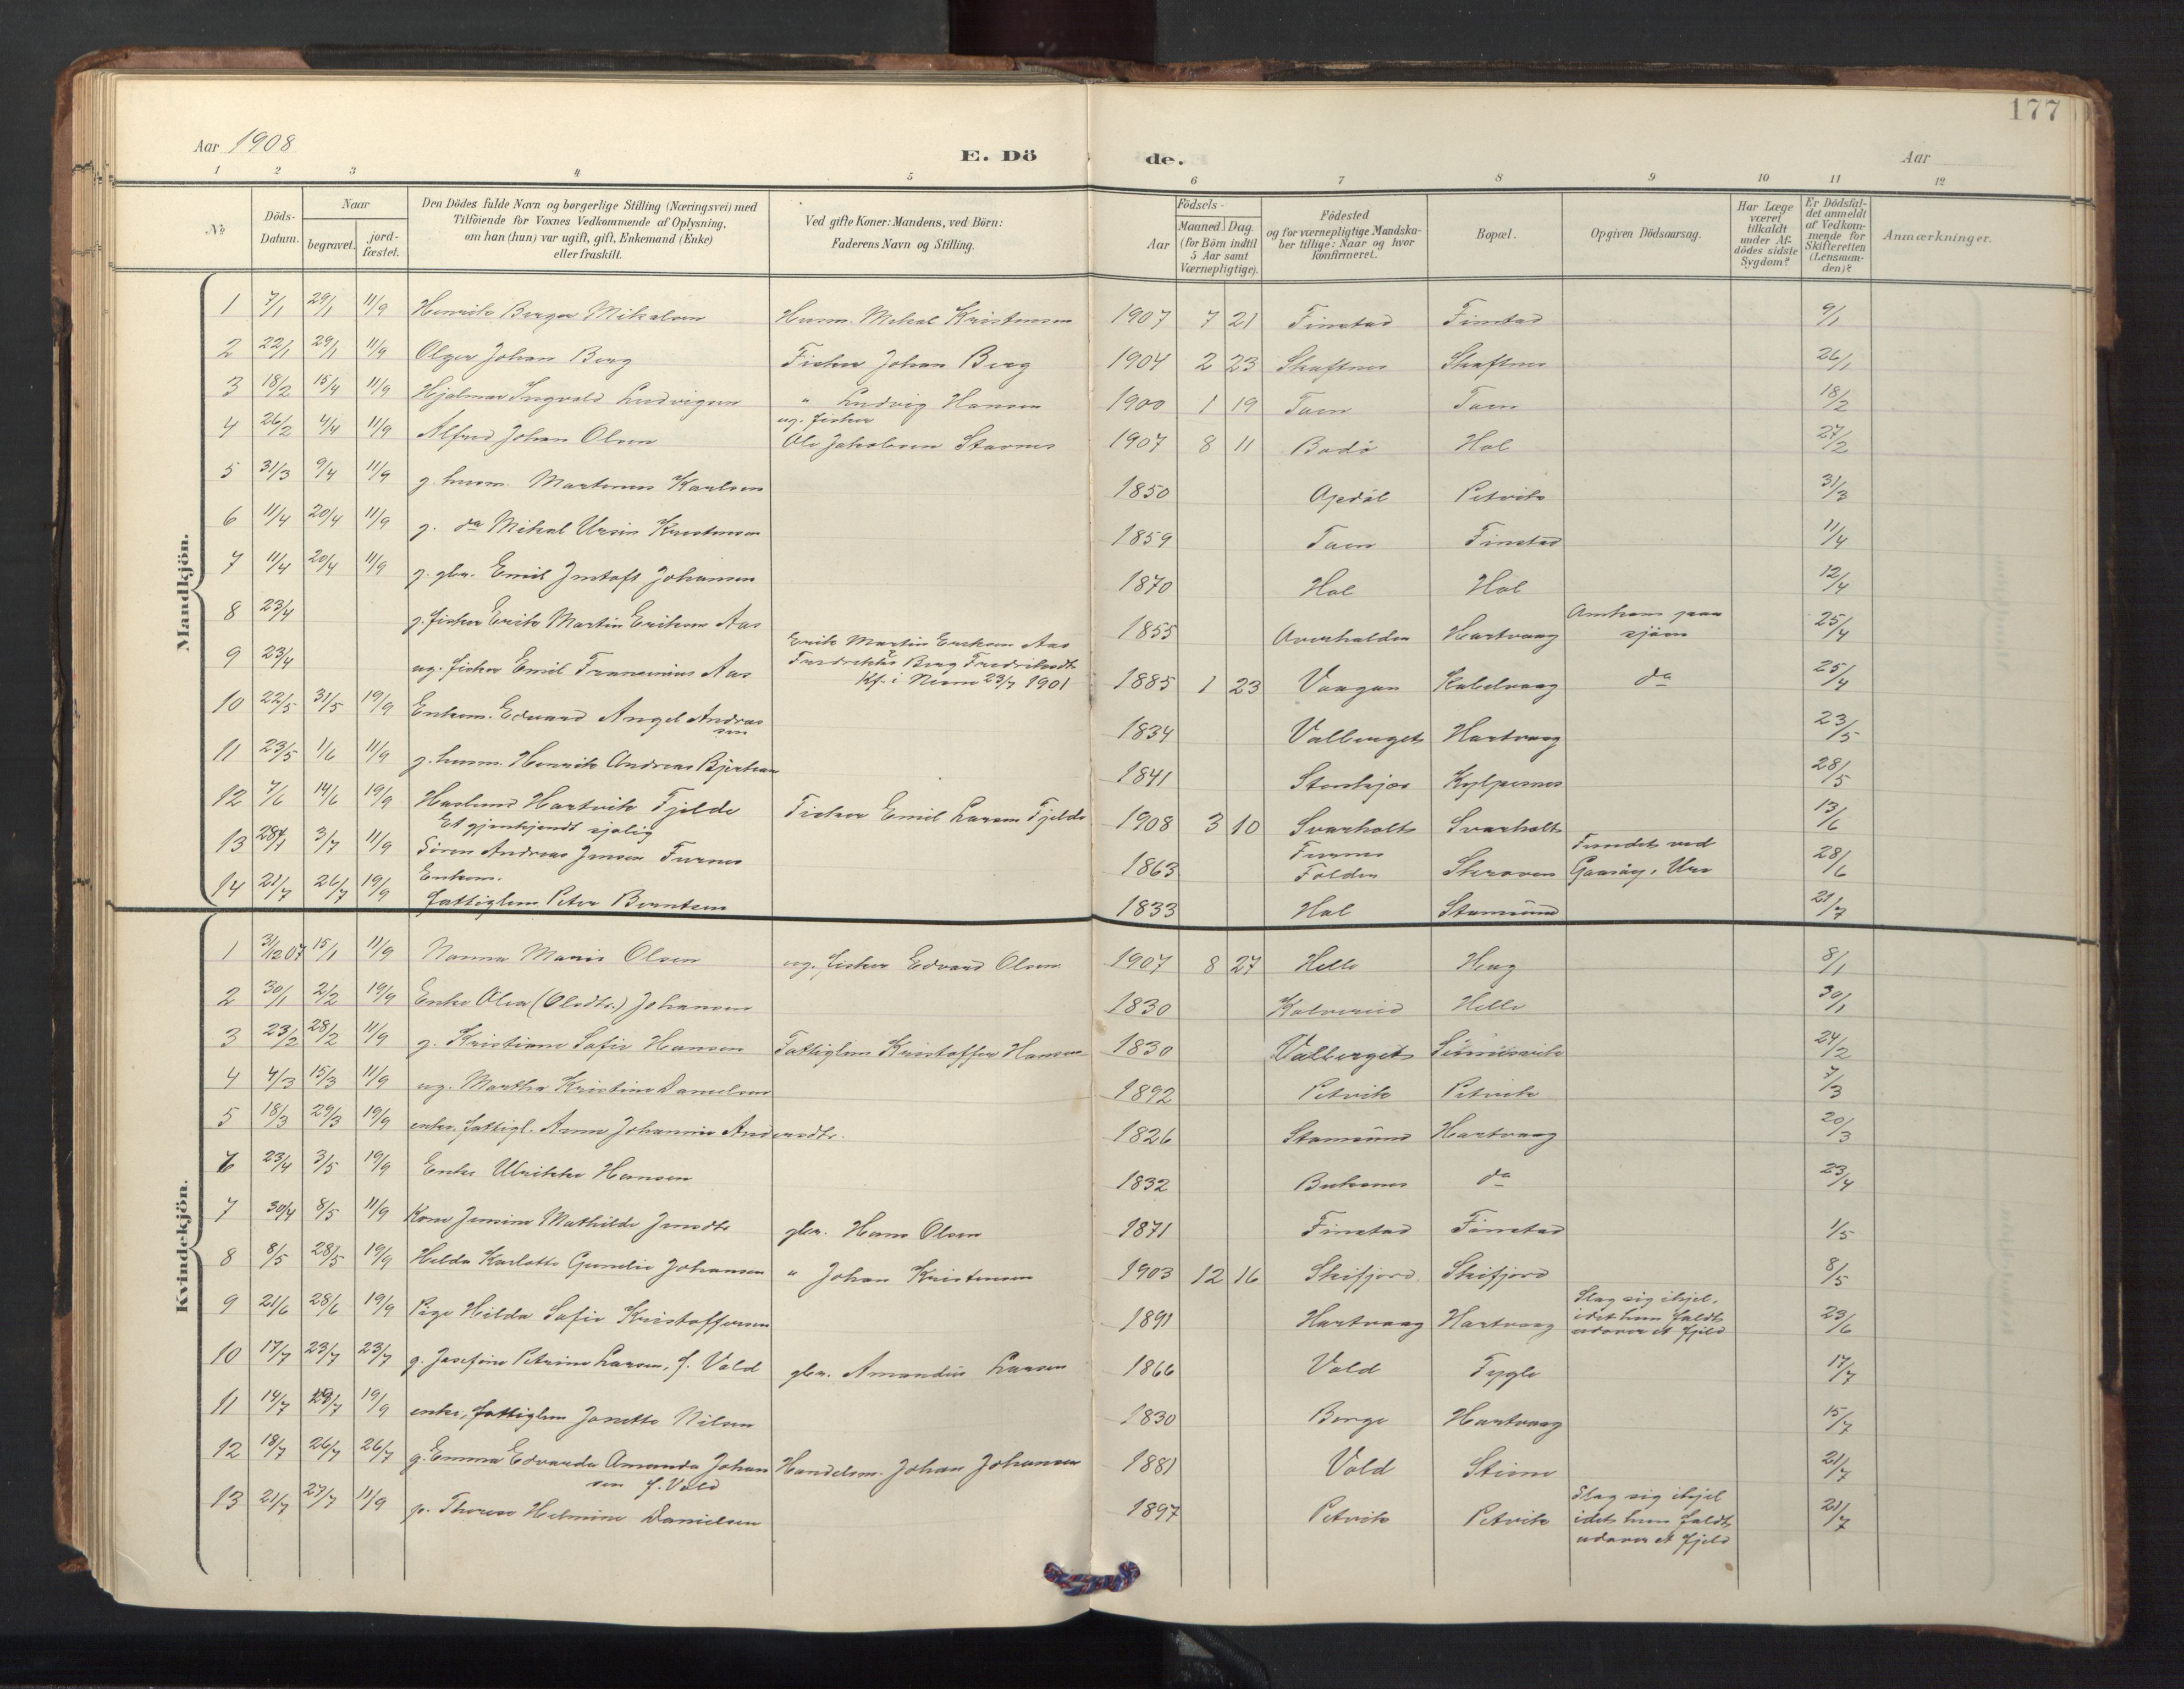 177
Aar 1908
E. Dö
de.
Aar
1 2 3 4 5 6 7 8 9 10 11 12
No
Döds-Datum.
Naar begravet. jordfæstet.
Den Dödes fulde Navn og borgerlige Stilling (Næringsvei) med Tilföiende for Voxnes Vedkommende af Oplysning, om han (hun) var ugift, gift, Enkemand (Enke) eller fraskilt.
Ved gifte Koner: Mandens, ved Börn: Faderens Navn og Stilling.
Födsels-
Aar
Maaned. Dag. (for Börn indtil 5 Aar samt Værnepligtige).
Födested og for værnepligtige Mandskaber tillige: Naar og hvor konfirmeret.
Bopæl.
Opgiven Dödsaarsag.
Har Læge været tilkaldt under Afdödes sidste Sygdom?
Er Dödsfaldet anmeldt af Vedkommende for Skifteretten (Lensmanden)?
Anmærkninger.
Mandkjön.
1 7/1 29/1 11/9 Henrik Berger Mikalsen Husm. Mikal Kristensen 1907 7 21 Finstad Finstad 9/1
2 22/1 29/1 11/9 Olger Johan Berg Fisker Johan Berg 1904 2 23 Skaftnes Skaftnes 26/1
3 18/2 15/4 11/9 Hjalmar Ingvald Ludvigsen " Ludvig Hansen 1900 1 19 Taen Taen 18/2
4 26/2 4/4 11/9 Alfred Johan Olsen ug. fisker Ole Jakobsen Stavnes 1907 8 11 Bodö Hol 27/2
5 31/3 9/4 11/9 g. husm. Martinus Karlsen 1850 Opdöl Petvik 31/3
6 11/4 20/4 11/9 g. do Mikal Ursin Kristensen 1859 Taen Finstad 11/4
7 11/4 20/4 11/9 g. gbr. Emil Johansen 1870 Hol Hol 12/4
8 23/4 g. fisker Erik Martin Eriksen Aas 1855 Overhalden Hartvaag Omkom paa sjöen 25/4
9 23/4 ug. fisker Emil Fransenius Aas Erik Martin Eriksen Aas Fredrikke Berg Fredriksdt. Kf. i 23/7 1901 1885 1 23 Vaagan Kabelvaag do 25/4
10 22/5 31/5 19/9 Enkem. Edvard Angel Andreassen 1834 Valberget Hartvaag 23/5
11 23/5 1/6 11/9 g. husm. Henrik Andreas 1841 Stenkjær Kylpesnes 28/5
12 7/6 14/6 19/9 Haslund Hartvik Fjelde Fisker Emil Larsen Fjelde 1908 3 10 Svarholt Svarholt 13/6
13 28/ 3/7 11/9 Et gjenkjendt sjölig Sören Andreas Jensen Furnes 1863 Furnes Folden Skroven Fundet ved Ure 28/6
14 21/7 26/7 19/9 Enkem. fattiglem Peter Berntsen 1833 Hol Stamsund 21/7
Kvindekjön.
1 31/12 07 15/1 11/9 Nanna Marie Olsen ug. fisker Edvard Olsen 1907 8 27 Helle Haug 8/1
2 30/1 2/2 19/9 Enke Olea (Olsdtr.) Johansen 1830 Helle 30/1
3 23/2 28/2 11/9 g. Kristiane Sofie Hansen Fattiglem Kristoffer Hansen 1830 Valberget 24/2
4 4/3 15/3 11/9 ug. Martha Kristine Danielsen 1892 Petvik Petvik 7/3
5 18/3 29/3 19/9 enke, fattigl. Anna Johanna Andersdtr. 1826 Stamsund Hartvaag 20/3
6 23/4 3/5 19/9 Enke Ulrikke Hansen 1832 Buksnes do 23/4
7 30/4 8/5 11/9 Kone Jensine Mathilde Jensdtr gbr. Hans Olsen 1871 Finstad Finstad 1/5
8 8/5 28/5 19/9 Hilda Karlotte Gunelie Johansen " Johan Kristensen 1903 12 16 Skifjord Skifjord 8/5
9 21/6 28/6 19/9 Pige Hilda Sofie Kristoffersen 1891 Hartvaag Hartvaag Slog sig ihjel, idet hun faldt udover et fjeld 23/6
10 17/7 23/7 23/7 g. Josefine Petrine Larsen, f. Vold gbr. Amandus Larsen 1866 Vold Fygle 17/7
11 14/7 19/7 19/9 enke, fattiglem Jonette Nilsen 1830 Borge Hartvaag 15/7
12 18/7 26/7 26/7 g. Emma Edvarda Amanda Johansen f. Vold Handelsm. Johan Johansen 1881 Vold Steine 21/7
13 21/7 27/7 11/9 p. Therese Helmine Danielsen 1897 Petvik Petvik Slog sig ihjel idet hun faldt udover et fjeld 21/7